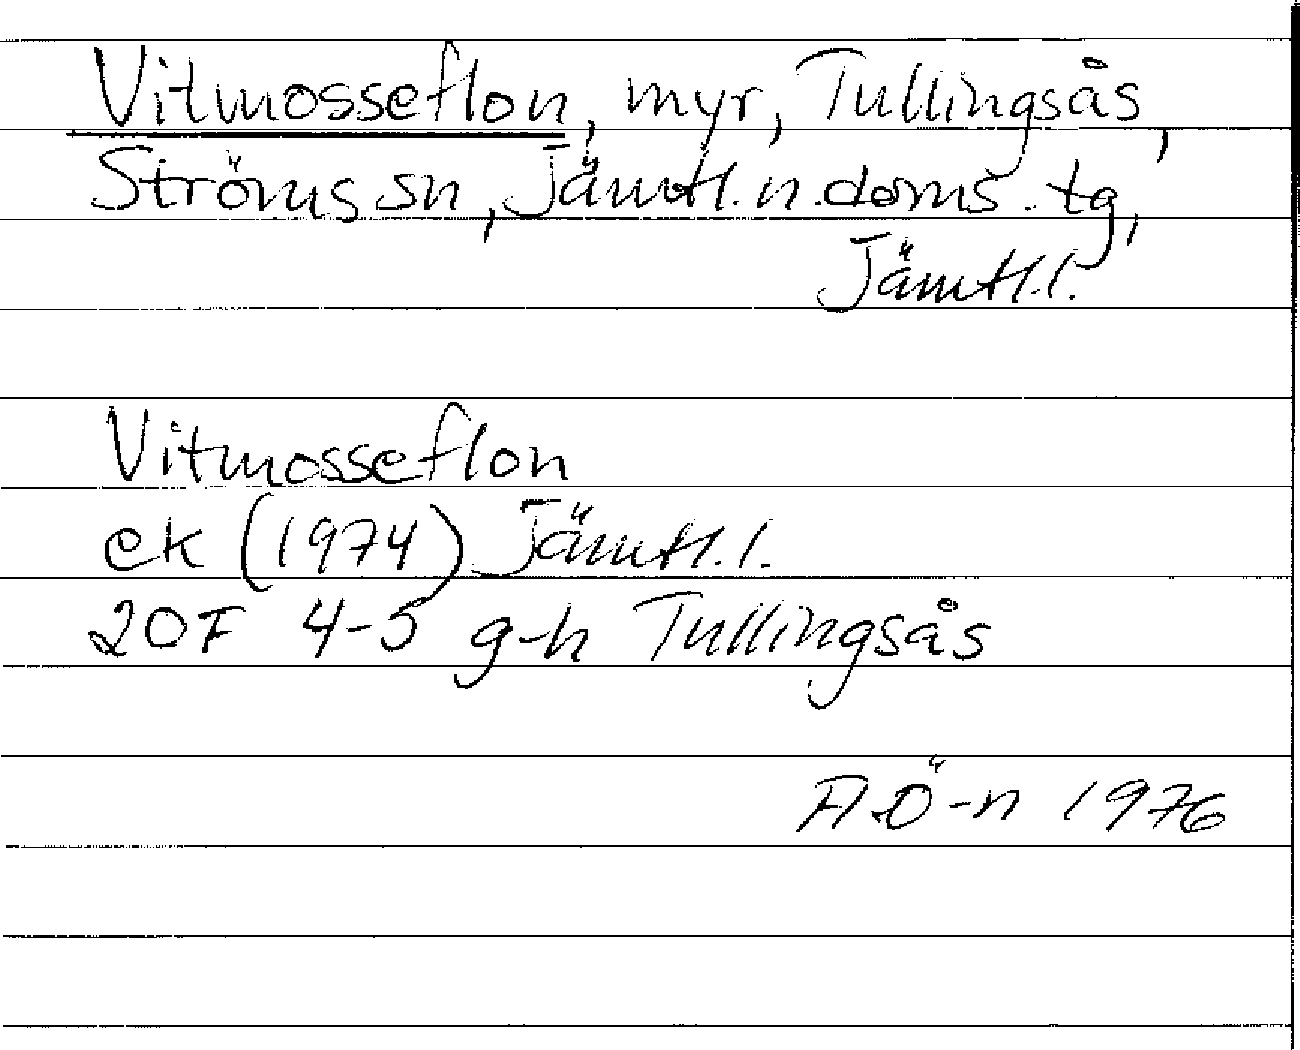 Vitmosseflon, myr, Tullingsås,
Ströms sn, Jämtl. n. doms. tg,
Jämtl. l.
Vitmosseflon
ek (1974) Jämtl. l.
20F 4-5 g-h Tullingsås
A Ö-n 1976